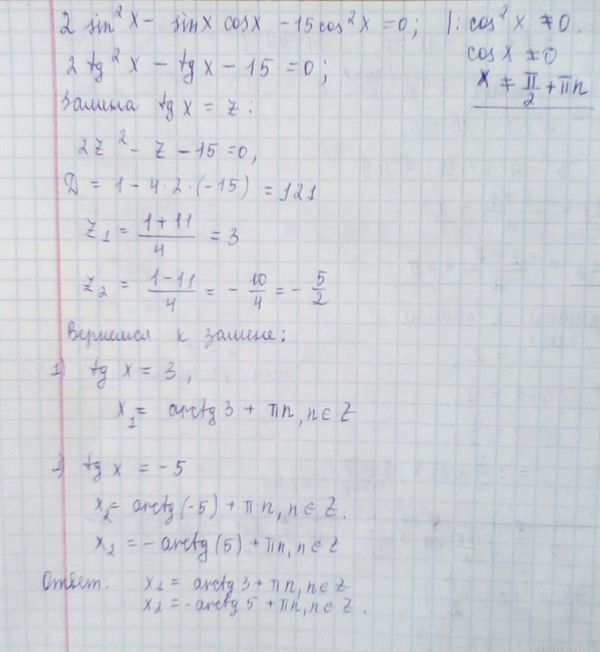 2 sin²x - sinx cosx - 15 cos²x = 0; |: cos²x ≠ 0.
cosx ≠ 0
2 tg²x - tgx - 15 = 0;
x ≠ π/2 + πn
Замина tgx = z:
2z² - z - 15 = 0,
D = 1 - 4·2·(-15) = 121
z₁ = (1+11)/4 = 3
z₂ = (1-11)/4 = -10/4 = -5/2
Вернемся к замине:
1) tg x = 3,
x₁ = arctg 3 + πn, n∈Z
2) tg x = -5
x₂ = arctg(-5) + πn, n∈Z.
x₂ = -arctg(5) + πn, n∈Z
Ответ: x₁ = arctg 3 + πn, n∈Z
x₂ = -arctg 5 + πn, n∈Z.